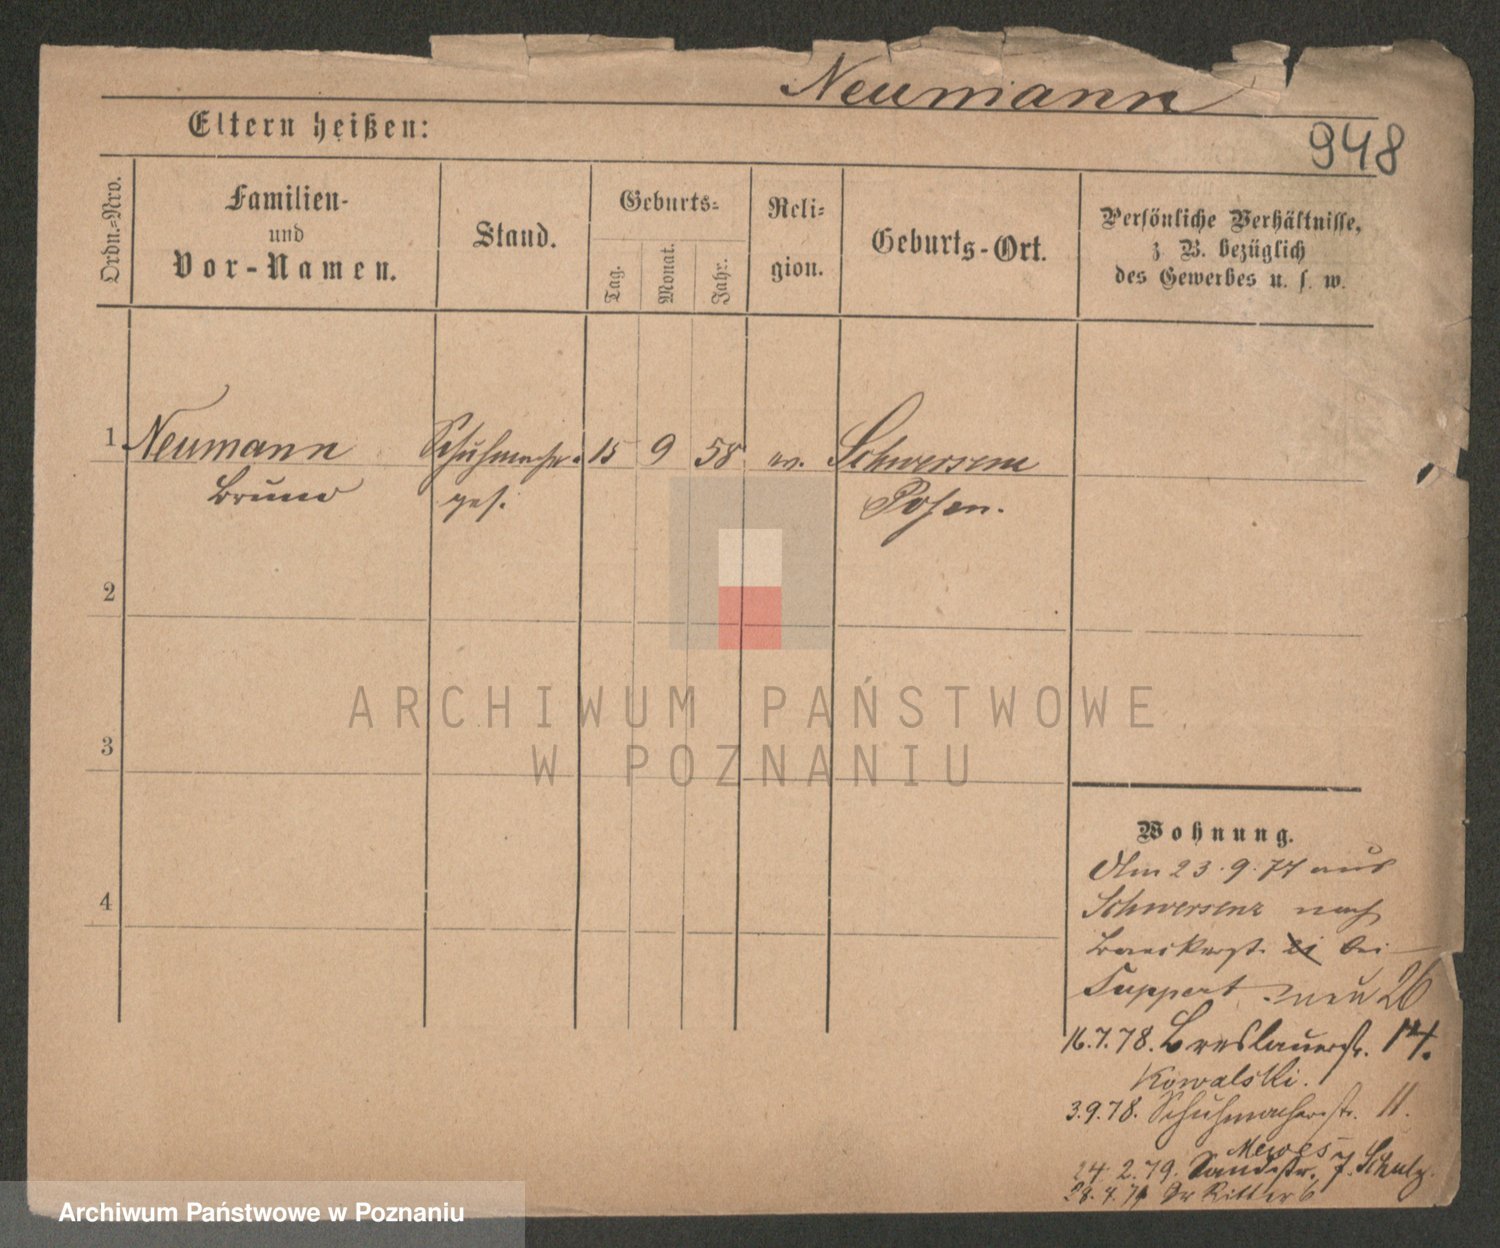 Neumann
948
Eltern heißen:
Ordn.-Nro.
Familien-
und
Vor-Namen.
Stand.
Geburts-
Tag.
Monat.
Jahr.
Reli-
gion.
Geburts-Ort.
Persönliche Verhältnisse,
z. B. bezüglich
des Gewerbes u. s. w.
1 Neumann Schuhmacher 15 9 58 ev. Schwersenz
Bruno ges. Posen.
2
3
4
ARCHIWUM PAŃSTWOWE
W POZNANIU
Wohnung.
Am 23.9.77 aus
Schwersenz nach
Baeckerst. bei
Tuppert neu 26
16.7.78. Breslauerstr. 14.
Kowalski.
3.9.78. Schuhmacherstr. 11.
Mewes
24 2.79. Sandstr. 7. Schulz.
28.4.79 Gr Ritter 6
Archiwum Państwowe w Poznaniu